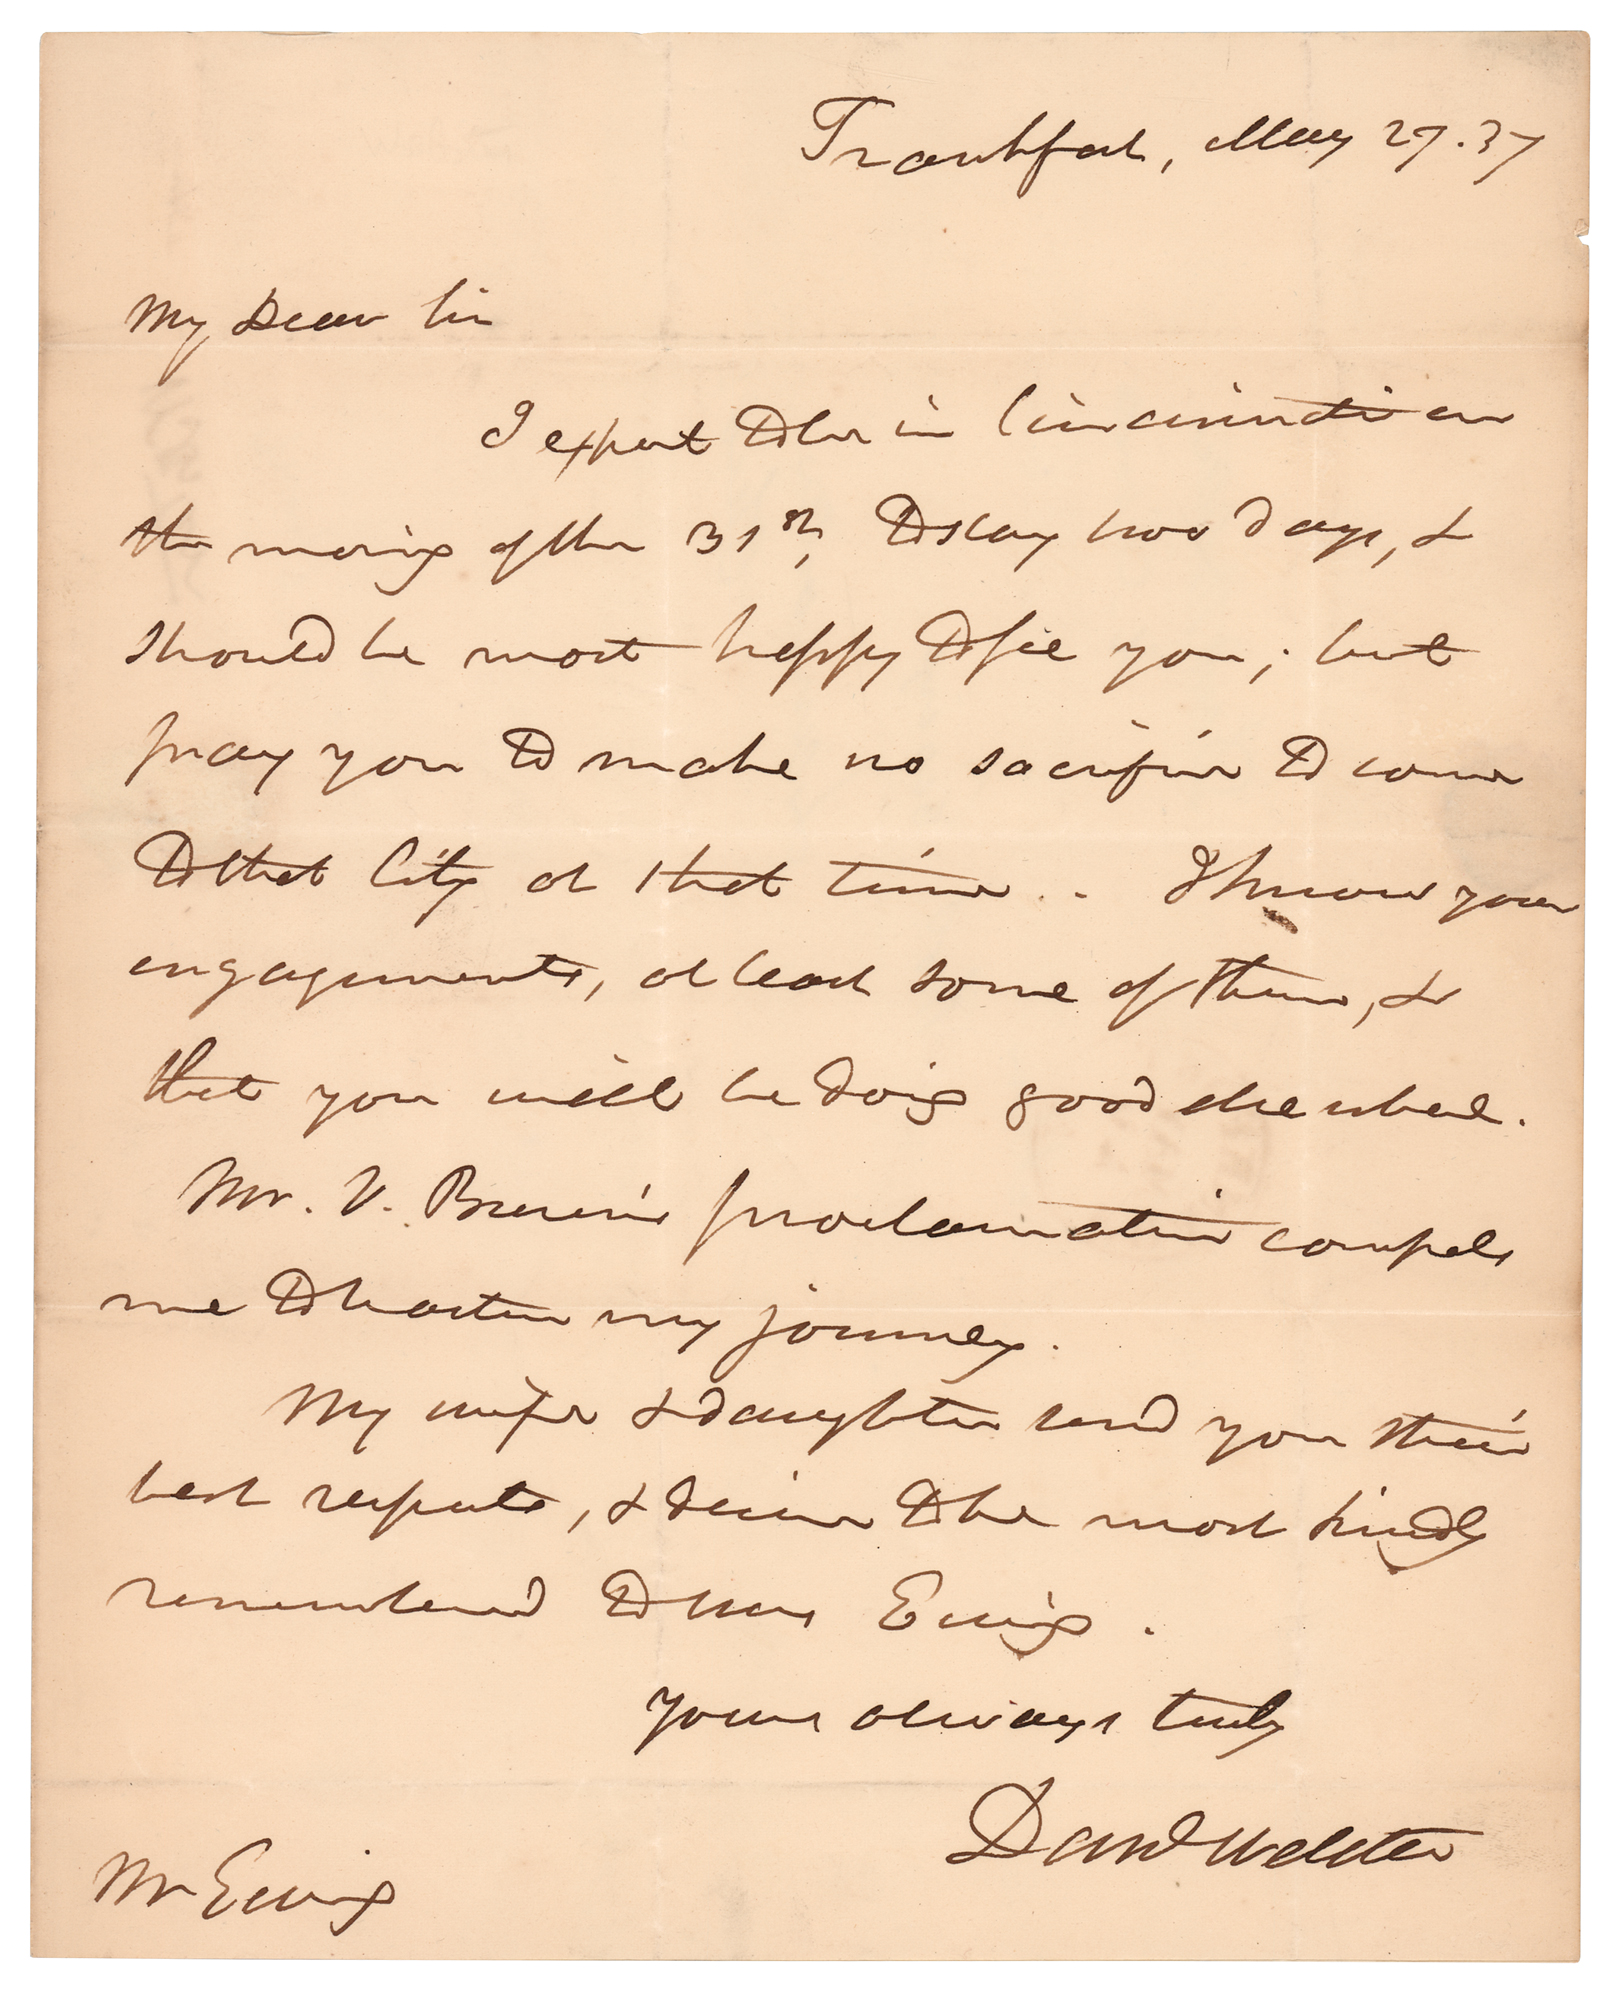 Frankfort, May 27. 37
My Dear Sir
I expect to be in Cincinnati on
the morning of the 31st, to stay two days, &
should be most happy to see you; but
pray you to make no sacrifice to come
to that City at that time. I know your
engagements, at least some of them, &
that you will be doing good elsewhere.
Mr. V. Buren's proclamation compels
me to hasten my journey.
My wife & daughter send you their
best respects, & desire to be most kindly
remembered to Mrs Ewing.
Yours always truly
Danl Webster
Mr Ewing